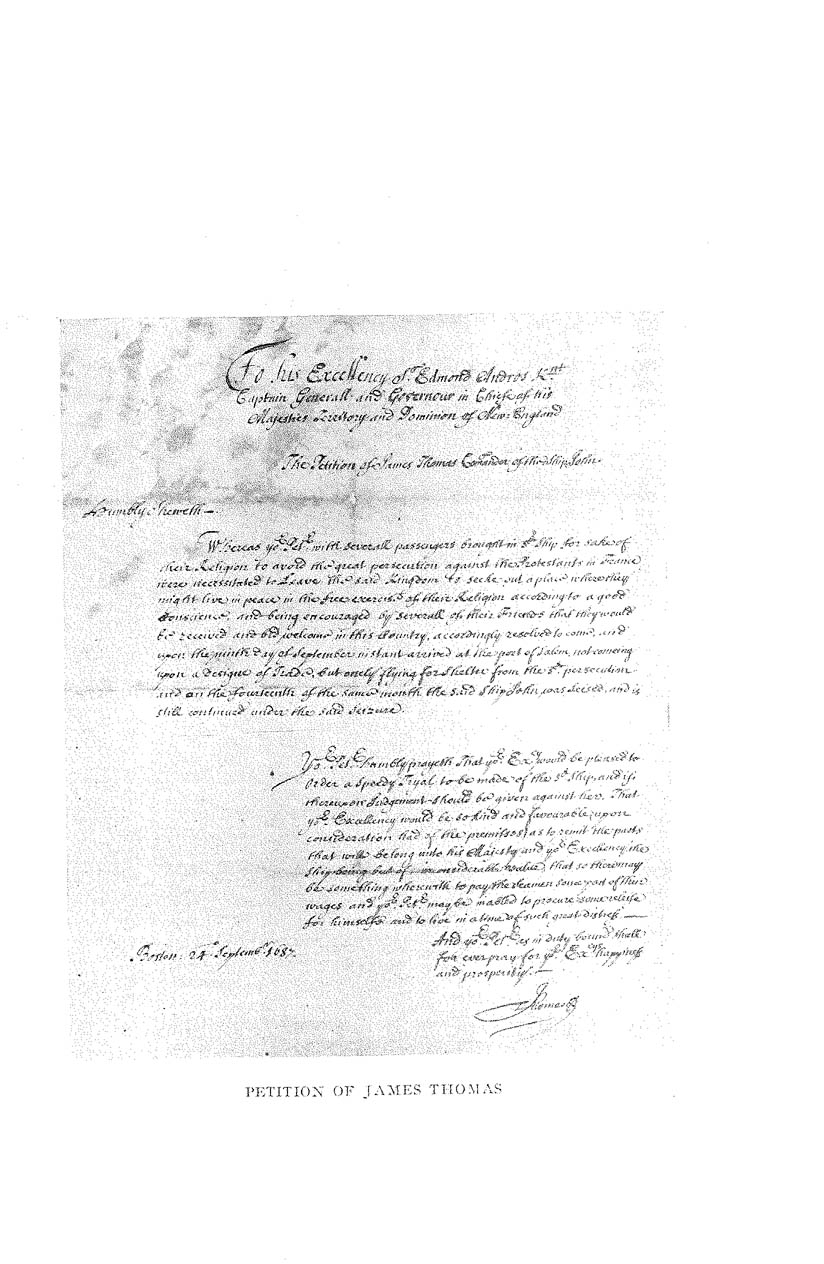 To his Excellency Sr. Edmond Andros Knt
Captain Generall and Governour in Chiefe of his
Majesties Territory and Dominion of New-England
The Petition of James Thomas Comander of the Ship John
Humbly Sheweth —
Whereas yor. Petr. with severall passengers brought in sd. Ship for sake of
their Religion to avoid the great persecution against the Protestants in France
were necessitated to Leave the said Kingdom to seeke out a place where they
might live in peace in the free exercise of their Religion according to a good
Conscience, and being encouraged by severall of their Friends that they would
be received and bid welcome in this Country, accordingly resolved to come, and
upon the ninth day of September instant arrived at the port of Salem, not comeing
upon a designe of Trade, but onely flying for Shelter from the sd. persecution
and on the fourteenth of the same month the said Ship John was seised, and is
still continued under the said Seizure.
Yor. Petr. humbly prayeth That yor. Excy would be pleased to
Order a Speedy Tryal to be made of the sd. Ship, and if
thereupon Judgement should be given against her, That
yor. Excellency would be so kind and favourable, upon
consideration had of the premisses, as to remit the parts
that will belong unto his Majesty and yor. Excellency, the
Ship being but of inconsiderable value, that so there may
be something wherewith to pay the Seamen some part of their
wages and yor. Petr. may be inabled to procure some releife
for himselfe and to live in a time of such great distress —
And yor. Petr. as in duty bound shall
for ever pray for yor. Excys happiness
and prosperity. —
Boston: 24o Septembr. 1687.
Thomas
PETITION OF JAMES THOMAS